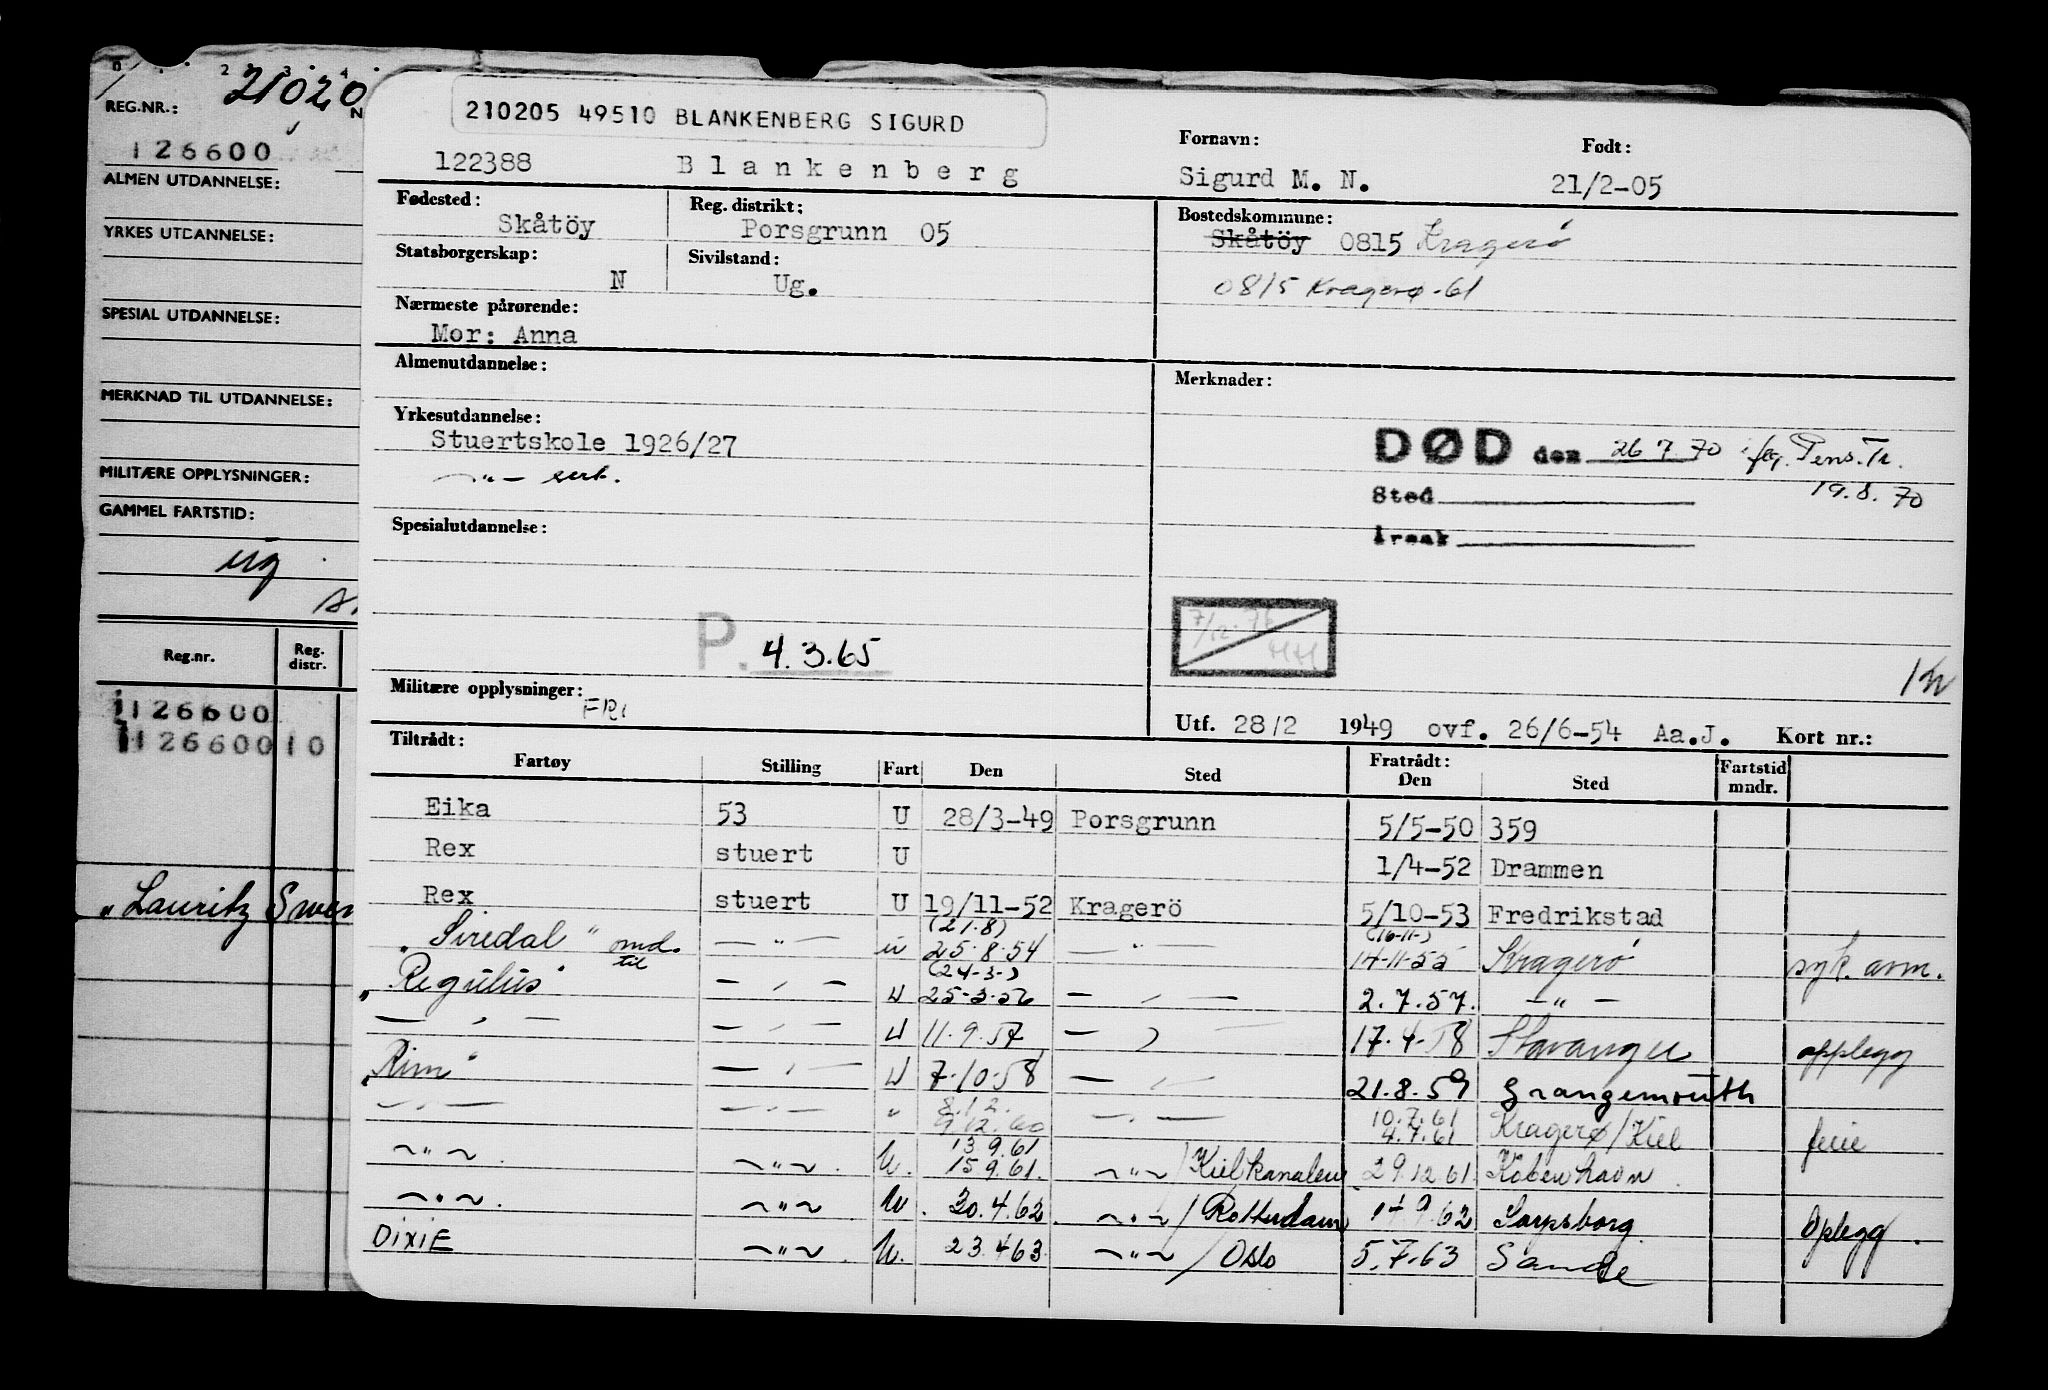 21020
REG.NR.:
126600
ALMEN UTDANNELSE:
YRKES UTDANNELSE:
SPESIAL UTDANNELSE:
MERKNAD TIL UTDANNELSE:
MILITÆRE OPPLYSNINGER:
GAMMEL FARTSTID:
ug
Reg.nr. Reg. distr.
126600
126600 10
"Lauritz Swen
210205 49510 BLANKENBERG SIGURD
122388 Blankenberg
Fornavn: Født:
Sigurd M. N. 21/2-05
Fødested: Reg. distrikt: Bostedskommune:
Skåtöy Porsgrunn 05 Skåtöy 0815 Kragerö
Statsborgerskap: Sivilstand:
N Ug. 0815 Kragerø -61
Nærmeste pårørende:
Mor: Anna
Almenutdannelse: Merknader:
Yrkesutdannelse:
Stuertskole 1926/27
—"— sert.
DØD den 26 7 70 ifg. Pens.Tr.
19.8.70
Sted
Årsak
Spesialutdannelse:
P. 4.3.65
7/12-76
HH
Militære opplysninger:
FRI
Utf. 28/2 1949 ovf. 26/6-54 Aa.J. Kort nr.:
Tiltrådt: Fratrådt:
Fartøy Stilling Fart Den Sted Den Sted Fartstid mndr.
Eika 53 U 28/3-49 Porsgrunn 5/5-50 359
Rex stuert U 1/4-52 Drammen
Rex stuert U 19/11-52 Kragerö 5/10-53 Fredrikstad
(21.8) (16-11-)
"Siredal" omd. til —"— u 25.8.54 —"— 14-11-55 Kragerö syk. avm.
(24-3-)
"Regulus" —"— U 25-3-56 —"— 2.7.57. —"—
—"— —"— U 11.9.57 —"— 17.4.58 Stavanger opplegg
"Rim" —"— U 7.10.58 —"— 21.8.59 Grangemouth
8.12. 10.7.61
—"— —"— " 9.12.60 —"— 4.7.61 Kragerø/Kiel ferie
13.9.61
—"— —"— U. 15.9.61. —"—/Kielkanalen 29.12.61. København
—"— —"— U. 30.4.62 —"—/Rotterdam 14.9.62 Sarpsborg. Oplegg.
DIXIE —"— U. 23.4.63 —"—/Oslo 5.7.63 Sande